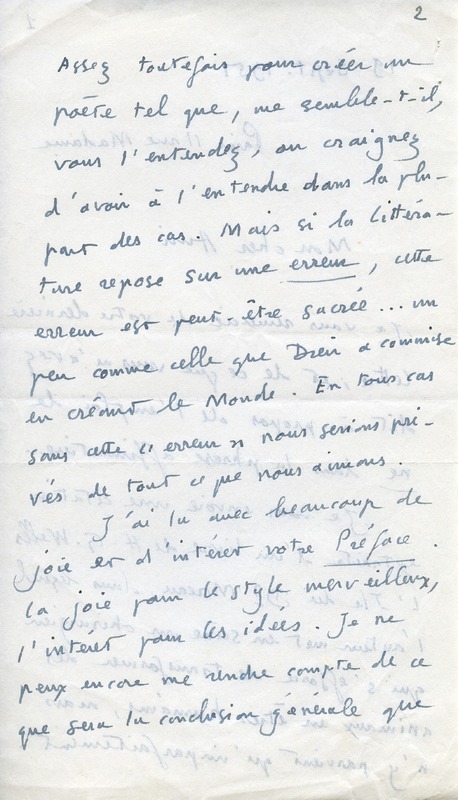 2
Assez toutefois pour créer un
poète tel que, me semble-t-il,
vous l'entendez, ou craignez
d'avoir à l'entendre dans la plu-
part des cas. Mais si la littéra-
ture repose sur une erreur, cette
erreur est peut-être sacrée... un
peu comme celle que Dieu a commise
en créant le Monde. En tous cas
sans cette "erreur" nous serions pri-
vés de tout ce que nous aimons.
J'ai lu avec beaucoup de
joie et d'intérêt votre Préface.
La joie pour le style merveilleux,
l'intérêt pour les idées. Je ne
peux encore me rendre compte de ce
que sera la conclusion générale que